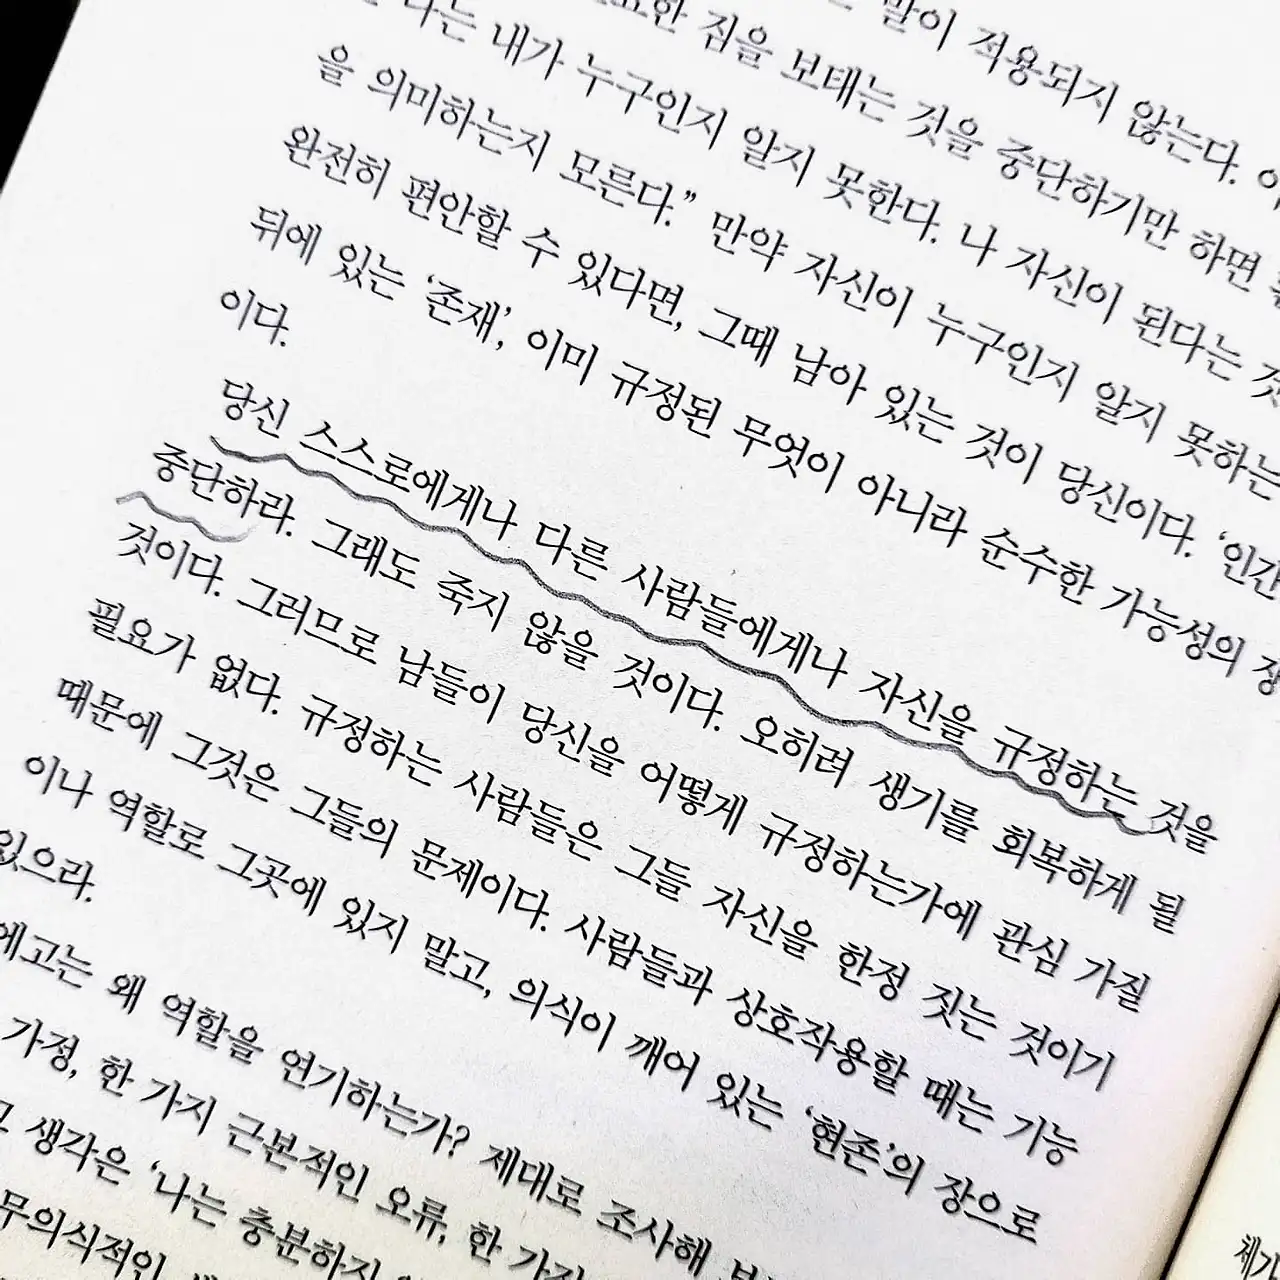 말이 적용되지 않는다.
짐을 보태는 것을 중단하기만 하면
나는 내가 누구인지 알지 못한다. 나 자신이 된다는
을 의미하는지 모른다.” 만약 자신이 누구인지 알지 못하는
완전히 편안할 수 있다면, 그때 남아 있는 것이 당신이다. ‘인간
뒤에 있는 ‘존재’, 이미 규정된 무엇이 아니라 순수한 가능성의
이다.
당신 스스로에게나 다른 사람들에게나 자신을 규정하는 것을
중단하라. 그래도 죽지 않을 것이다. 오히려 생기를 회복하게 될
것이다. 그러므로 남들이 당신을 어떻게 규정하는가에 관심 가질
필요가 없다. 규정하는 사람들은 그들 자신을 한정 짓는 것이기
때문에 그것은 그들의 문제이다. 사람들과 상호작용할 때는 기능
이나 역할로 그곳에 있지 말고, 의식이 깨어 있는 ‘현존’의 장으로
있으라.
에고는 왜 역할을 연기하는가? 제대로 조사해
가정, 한 가지 근본적인 오류, 한
생각은 ‘나는 충분하지
무의식적인